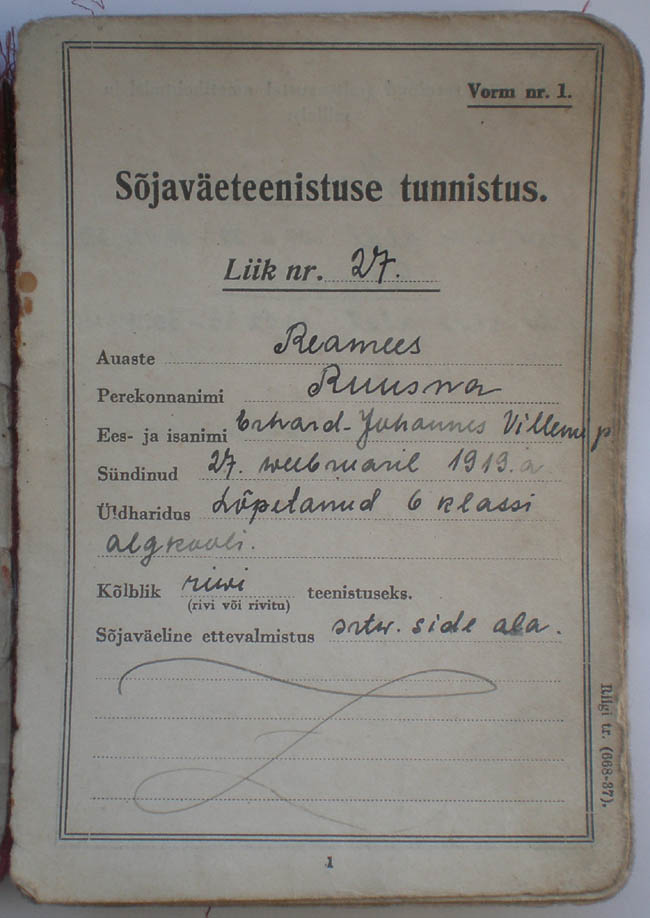 Vorm nr. 1.
Sõjaväeteenistuse tunnistus.
Liik nr. 27.
Auaste Reamees
Perekonnanimi Ruusna
Ees- ja isanimi Erhard-Johannes Villem p
Sündinud 27. weebruaril 1919. a
Üldharidus Lõpetanud 6 klassi
algkooli.
Kõlblik riwi teenistuseks.
(rivi või rivitu)
Sõjaväeline ettevalmistus srtw. side ala.
Riigi tr. (668-37).
1